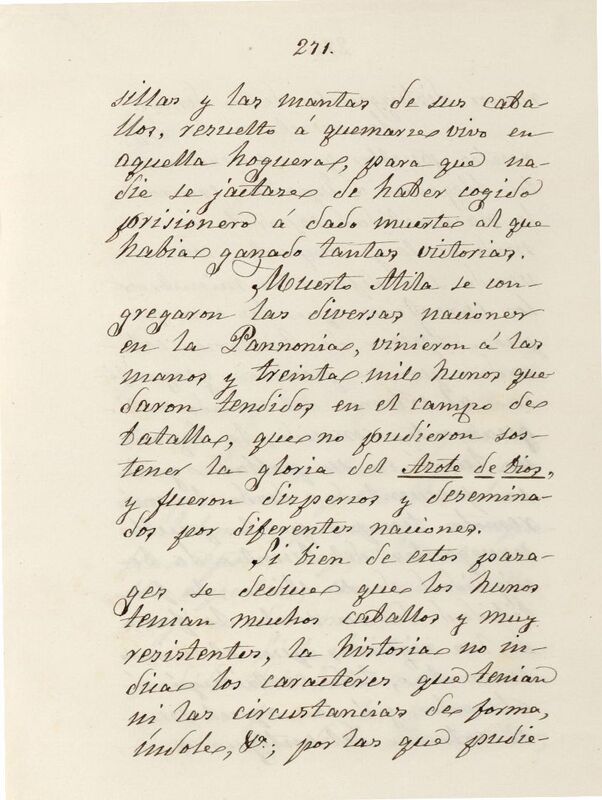 271.
sillas y las mantas de sus caba-
llos, resuelto á quemarse vivo en
aquella hoguera, para que na-
die se jactase de haber cogido
prisionero á dado muerte al que
habia ganado tantas victorias.
Muerto Atila se con-
gregaron las diversas naciones
en la Pannonia, vinieron á las
manos y treinta mil hunos que
daron tendidos en el campo de
batalla, que no pudieron sos-
tener la gloria del Azote de Dios,
y fueron dispersos y desemina-
dos por diferentes naciones.
Si bien de estos para-
ges se deduce que los hunos
tenian muchos caballos y muy
resistentes, la historia no in-
dica los caractéres que tenian
ni las circustancias de forma,
índole, &ª.; por las que pudie-